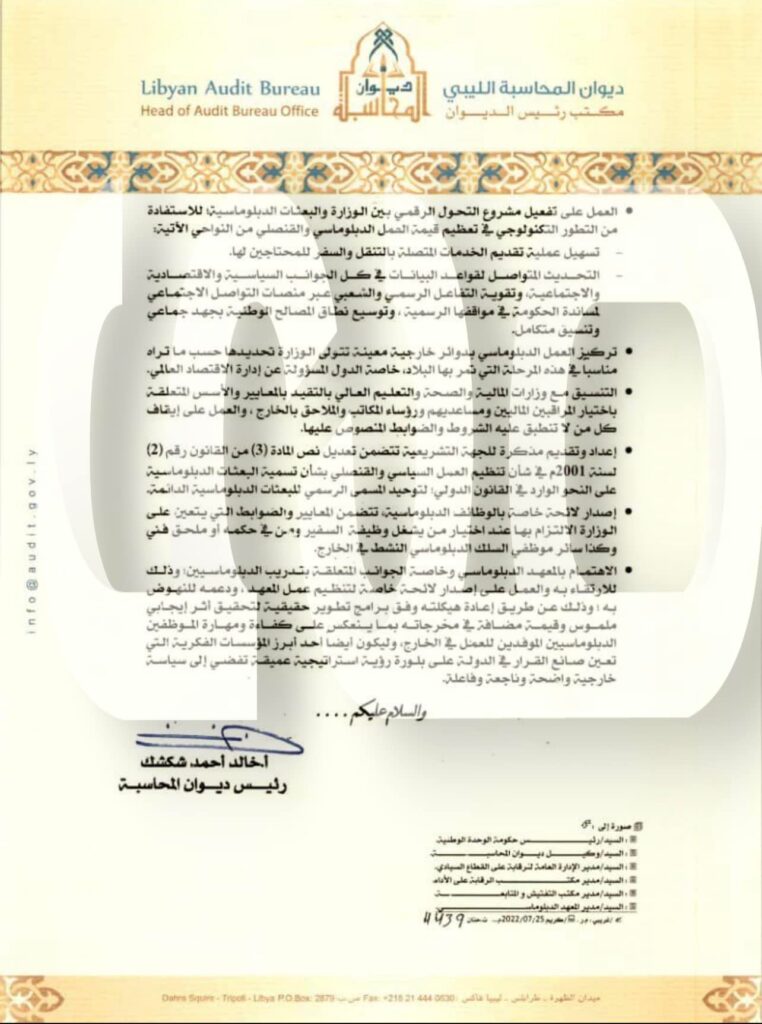 Libyan Audit Bureau
Head of Audit Bureau Office
ديوان المحاسبة
ديوان المحاسبة الليبي
مكتب رئيس الديوان
• العمل على تفعيل مشروع التحول الرقمي بين الوزارة والبعثات الدبلوماسية؛ للاستفادة
من التطور التكنولوجي في تعظيم قيمة العمل الدبلوماسي والقنصلي من النواحي الأتية:
- تسهيل عملية تقديم الخدمات المتصلة بالتنقل والسفر للمحتاجين لها.
- التحديث المتواصل لقواعد البيانات في كل الجوانب السياسية والاقتصادية
والاجتماعية، وتقوية التفاعل الرسمي والشعبي عبر منصات التواصل الاجتماعي
لمساندة الحكومة في مواقفها الرسمية، وتوسيع نطاق المصالح الوطنية بجهد جماعي
وتنسيق متكامل.
• تركيز العمل الدبلوماسي بدوائر خارجية معينة تتولى الوزارة تحديدها حسب ما تراه
مناسبا في هذه المرحلة التي تمر بها البلاد، خاصة الدول المسؤولة عن إدارة الاقتصاد العالمي.
• التنسيق مع وزارات المالية والصحة والتعليم العالي بالتقيد بالمعايير والأسس المتعلقة
باختيار المراقبين الماليين ومساعديهم ورؤساء المكاتب والملاحق بالخارج، والعمل على إيقاف
كل من لا تنطبق عليه الشروط والضوابط المنصوص عليها.
• إعداد وتقديم مذكرة للجهة التشريعية تتضمن تعديل نص المادة (3) من القانون رقم (2)
لسنة 2001م في شأن تنظيم العمل السياسي والقنصلي بشأن تسمية البعثات الدبلوماسية
على النحو الوارد في القانون الدولي؛ لتوحيد المسمى الرسمي للبعثات الدبلوماسية الدائمة.
• إصدار لائحة خاصة بالوظائف الدبلوماسية، تتضمن المعايير والضوابط التي يتعين على
الوزارة الالتزام بها عند اختيار من يشغل وظيفة السفير ومن في حكمه أو ملحق فني
وكذا سائر موظفي السلك الدبلوماسي النشط في الخارج.
• الاهتمام بالمعهد الدبلوماسي وخاصة الجوانب المتعلقة بتدريب الدبلوماسيين؛ وذلك
للارتقاء به والعمل على إصدار لائحة خاصة لتنظيم عمل المعهد، ودعمه للنهوض
به؛ وذلك عن طريق إعادة هيكلته وفق برامج تطوير حقيقية لتحقيق أثر إيجابي
ملموس وقيمة مضافة في مخرجاته بما ينعكس على كفاءة ومهارة الموظفين
الدبلوماسيين الموفدين للعمل في الخارج، وليكون أيضا أحد أبرز المؤسسات الفكرية التي
تعين صانع القرار في الدولة على بلورة رؤية استراتيجية عميقة تفضي إلى سياسة
خارجية واضحة وناجعة وفاعلة.
والسلام عليكم ....
أ.خالد أحمد شكشك
رئيس ديوان المحاسبة
صورة إلى :
السيد/رئيس حكومة الوحدة الوطنية.
السيد/وكيل ديوان المحاسبة.
السيد/مدير الإدارة العامة للرقابة على القطاع السيادي.
السيد/مدير مكتب الرقابة على الأداء.
السيد/مدير مكتب التفتيش و المتابعة.
السيد/مدير المعهد الدبلوماسي.
2022/07/25م 4439
info@audit.gov.ly
Dahra Square - Tripoli - Libya P.O.Box: 2879 ص.ب Fax: +218 21 444 0630 ميدان الظهرة - طرابلس - ليبيا فاكس: